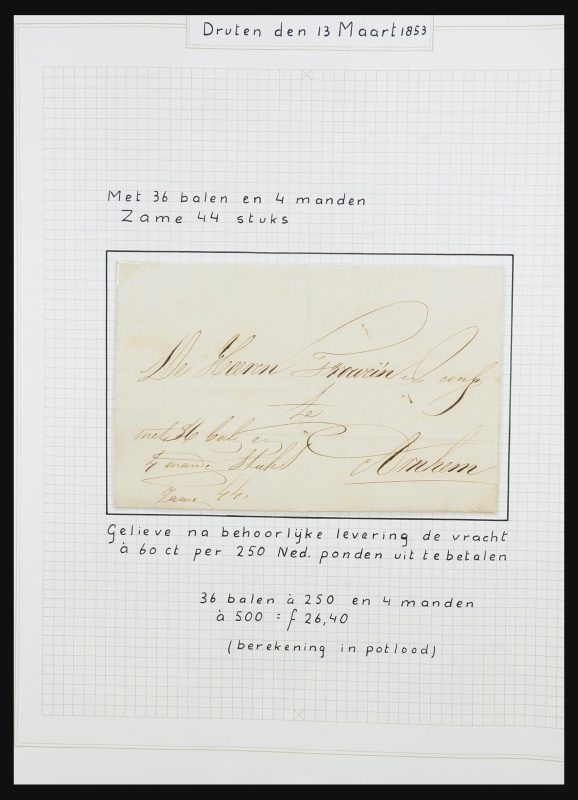 Druten den 13 Maart 1853
Met 36 balen en 4 manden
Zame 44 stuks
De Heeren
te
Arnhem
met 36 balen en
4 mande Stuks
Zame 44.
Gelieve na behoorlijke levering de vracht
à 60 ct per 250 Ned. ponden uit te betalen
36 balen à 250 en 4 manden
à 500 = f 26,40
(berekening in potlood)